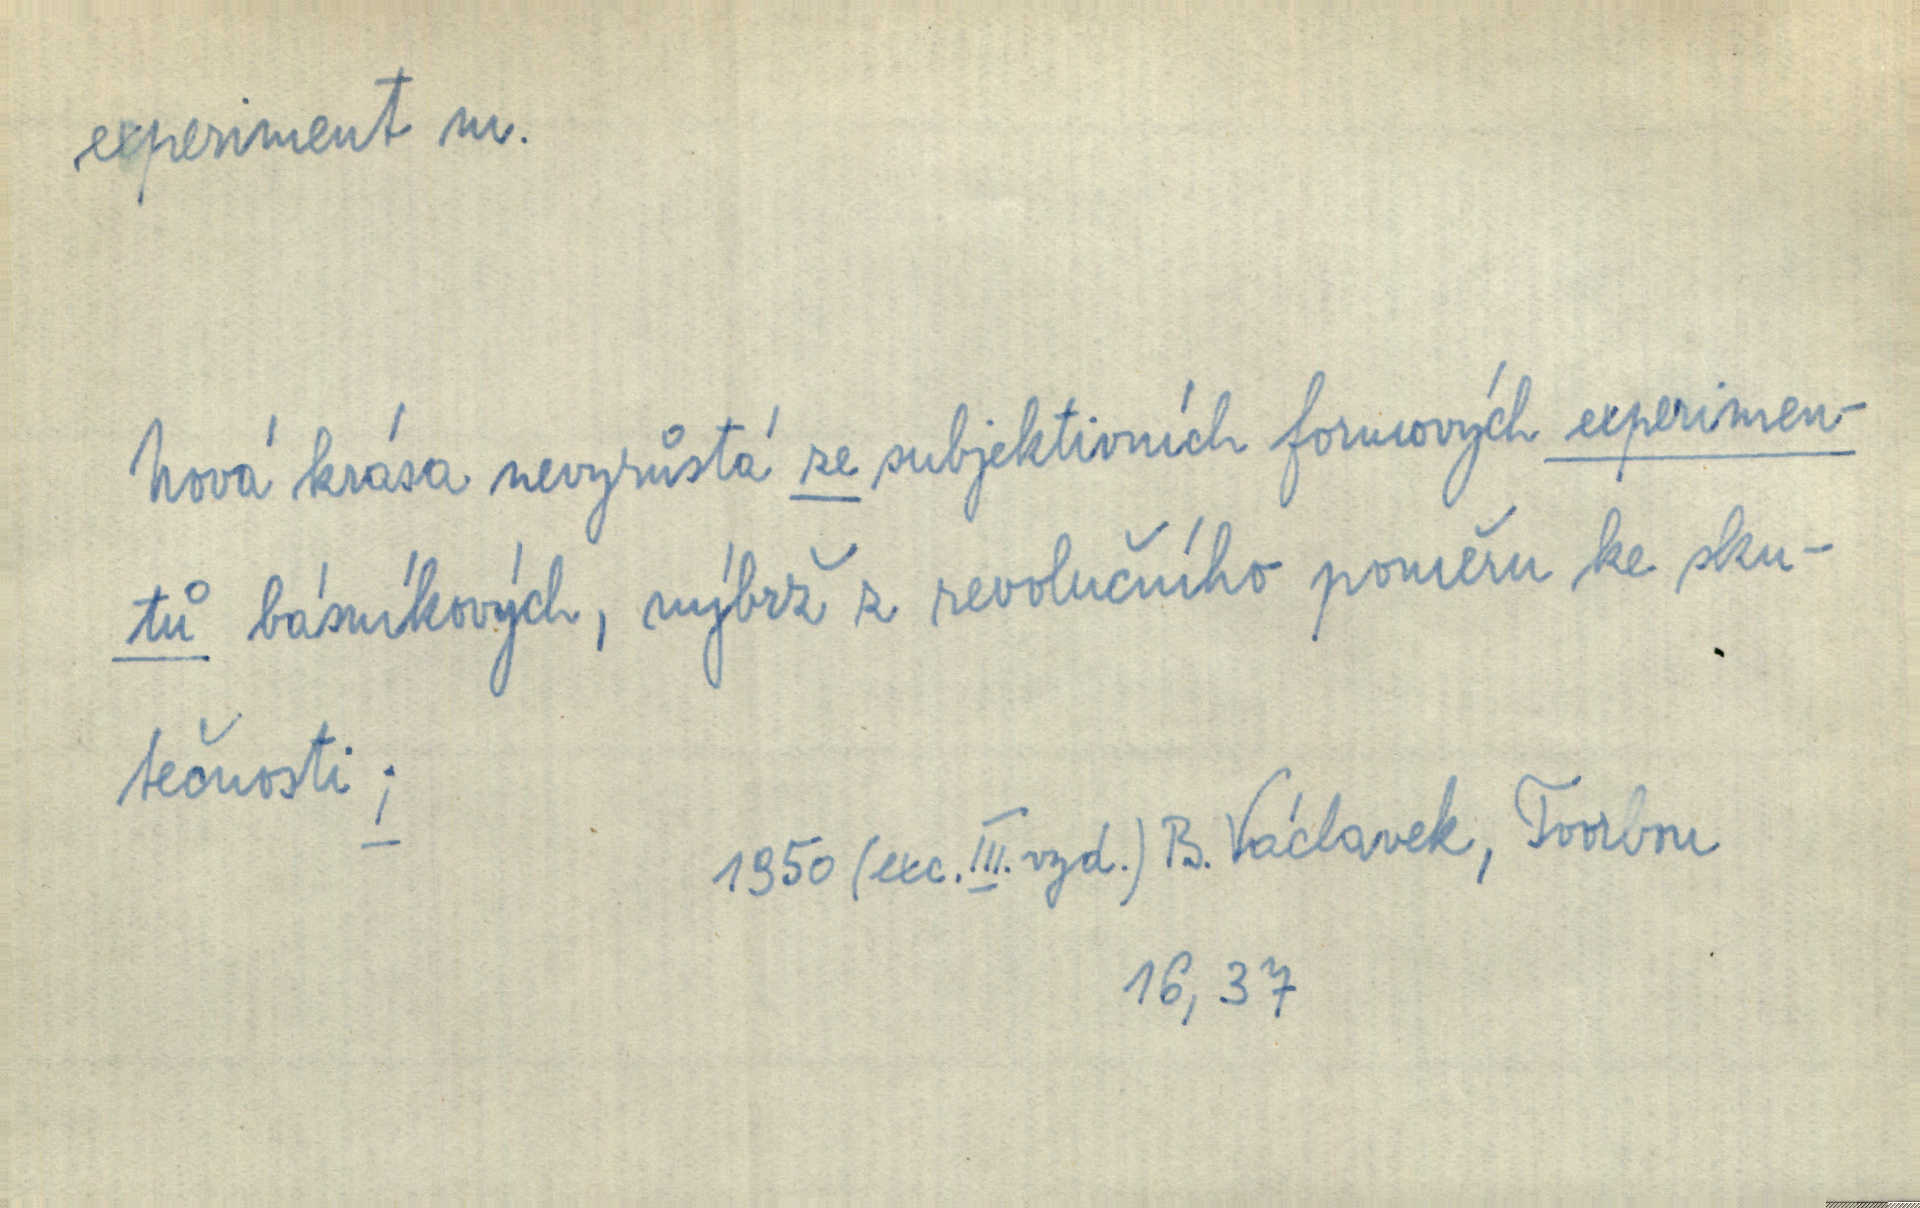 experiment m.
Nová krása nevyrůstá ze subjektivních formových experimen-
tů básníkových, nýbrž z revolučního poměru ke sku-
tečnosti;
1950 (exc. III. vyd.) B. Václavek, Tvorbou
16, 37